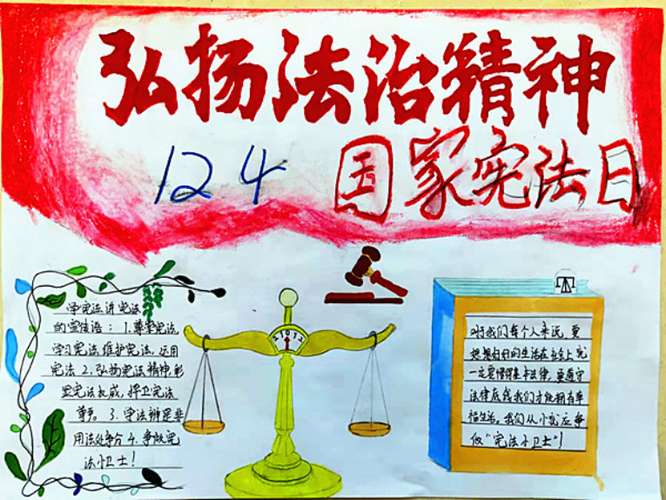 弘扬法治精神
124 国家宪法日
学宪法讲宪法
的宣传语：1.尊崇宪法,
学习宪法,维护宪法,运用
宪法 2.弘扬宪法精神,彰
显宪法权威,捍卫宪法
尊严。3.学法辨是非
用法处争分 4.争做宪
法小卫士！
对于我们每个人来说,要
想想好好的生活在社会上,就
一定要懂得基本法律,要遵守
法律底线我们才能拥有幸
福生活。我们从小就应争
做“宪法小卫士”！
21012